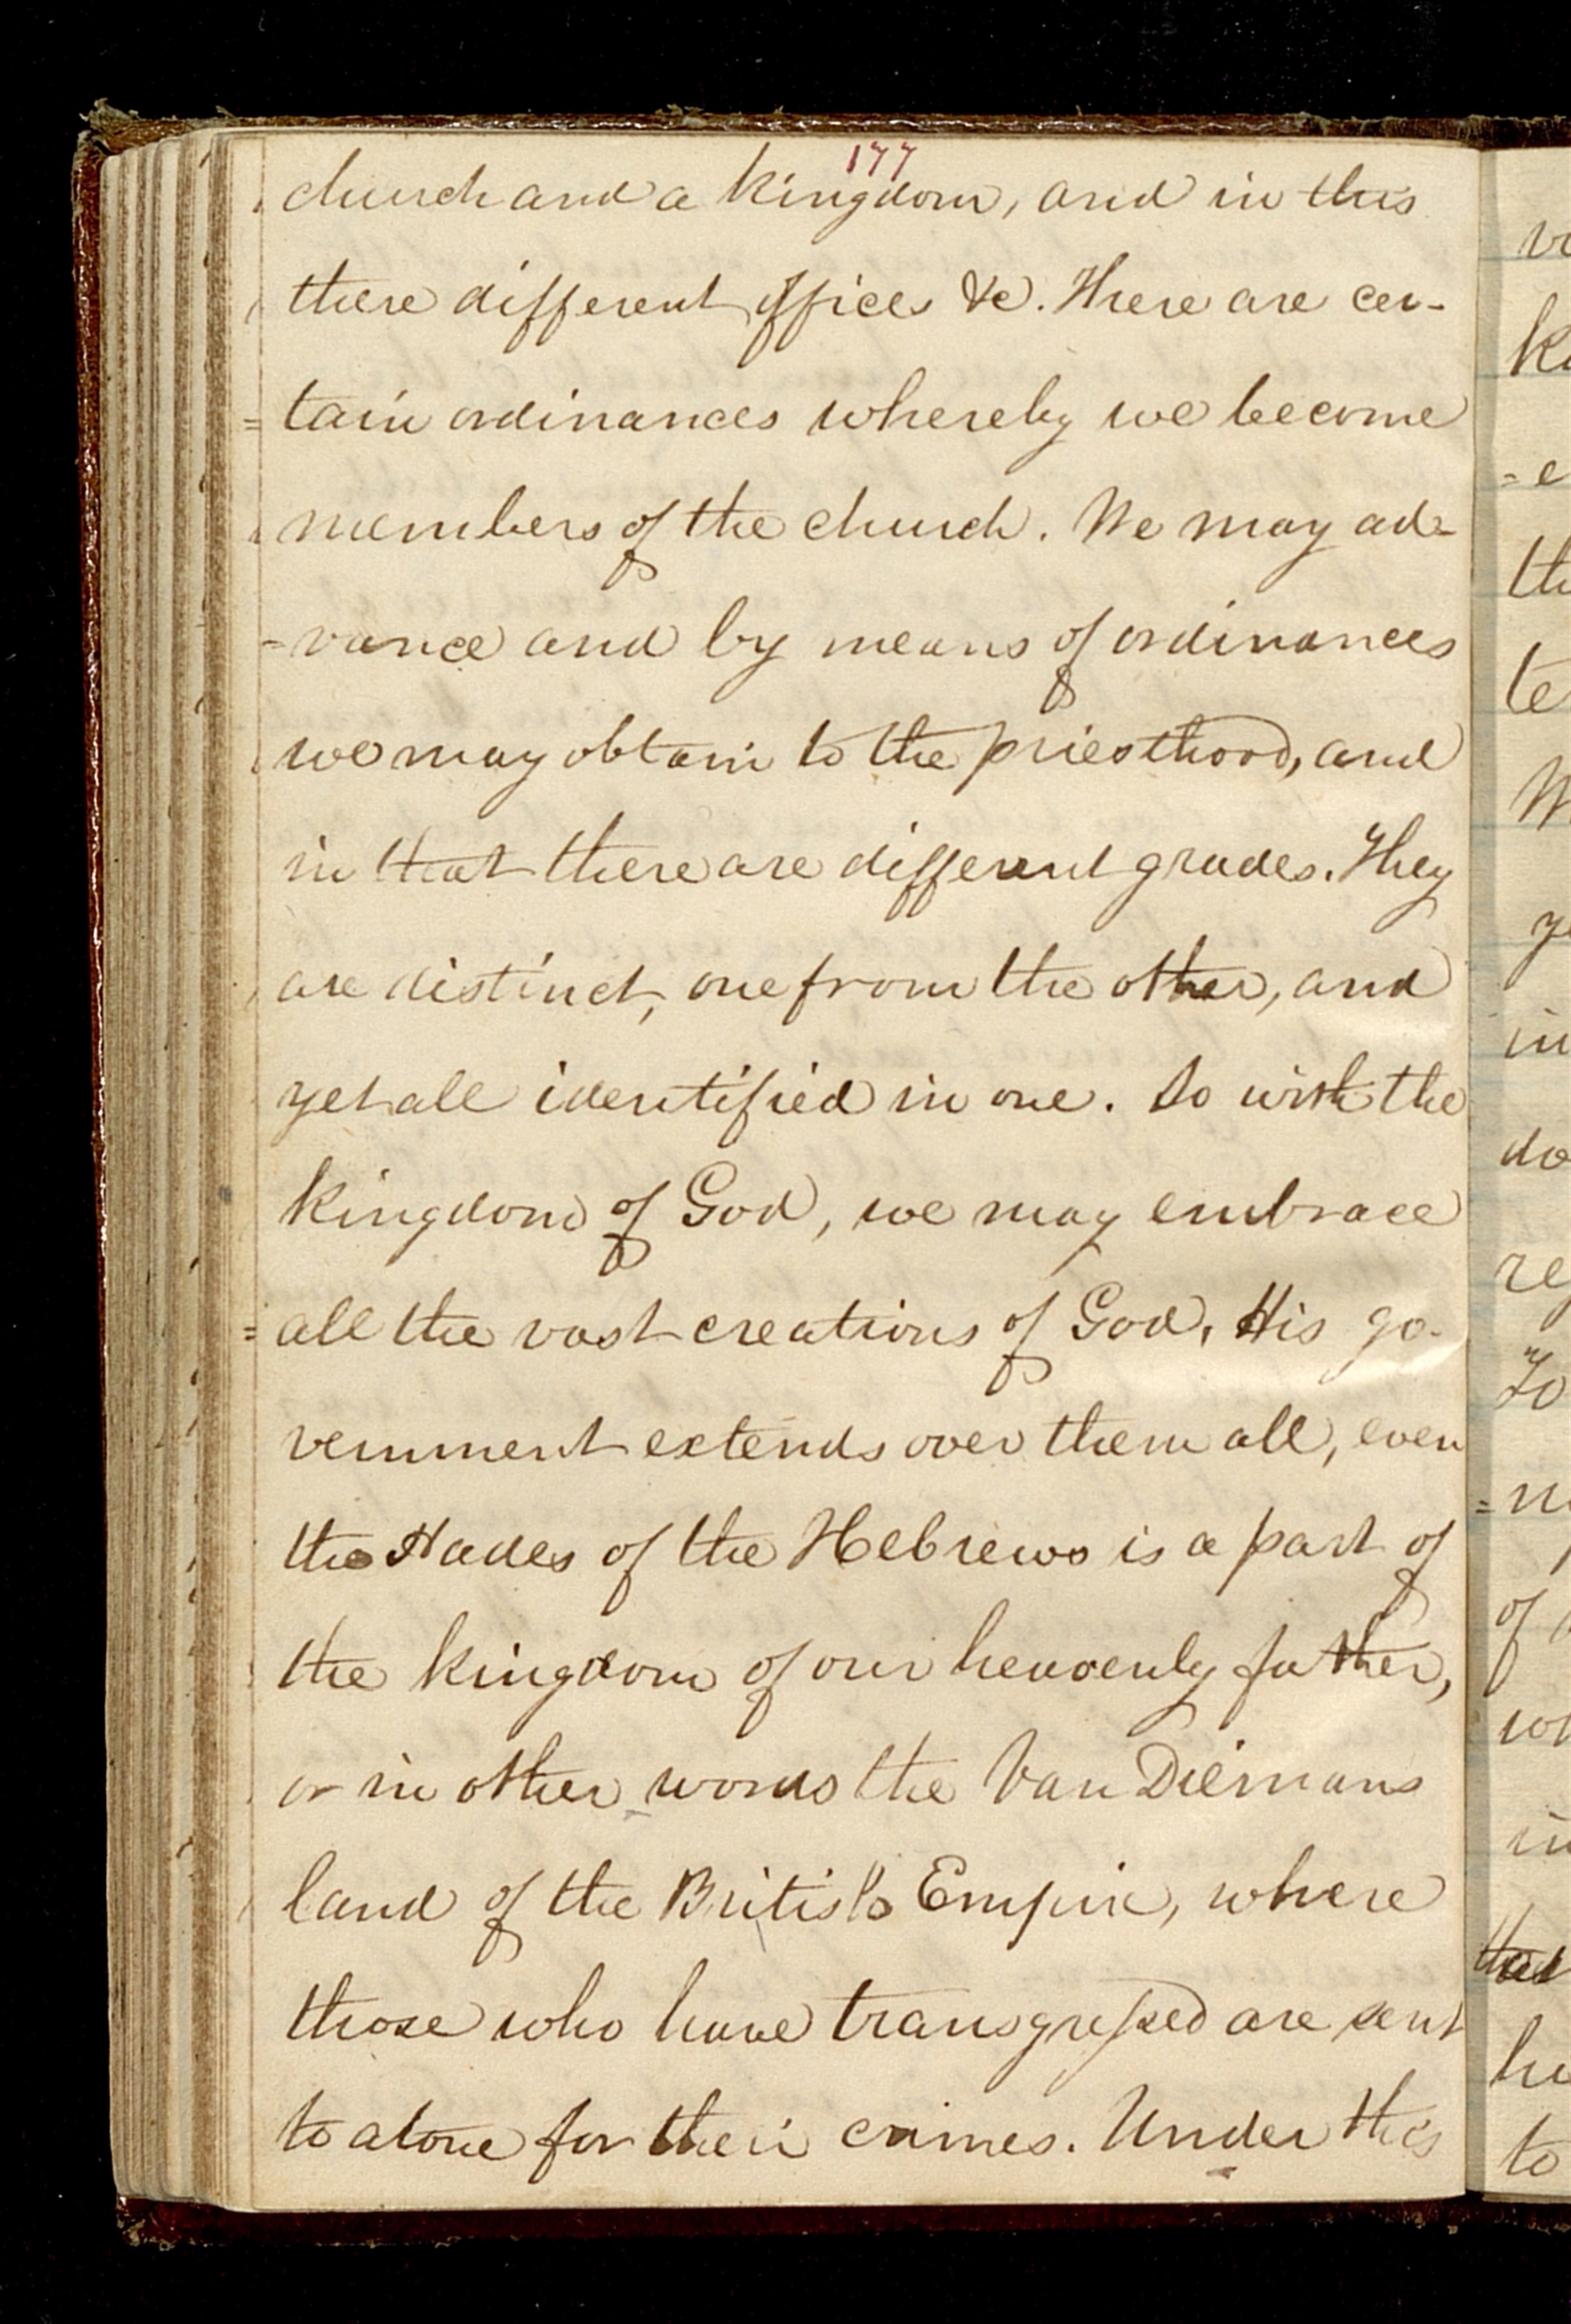 177
church and a kingdom, and in this
there different offices &c. There are cer-
= tain ordinances whereby we become
members of the church. We may ad-
- vance and by means of ordinances
we may obtain to the priesthood, and
in that there are different grades. They
are distinct, one from the other, and
yet all identified in one. So with the
kingdom of God, we may embrace
= all the vast creations of God, His go-
vernment extends over them all, even
the Hades of the Hebrews is a part of
the kingdom of our heavenly father,
or in other words the Van Diemans
land of the British Empire, where
those who have transgressed are sent
to atone for their crimes. Under this